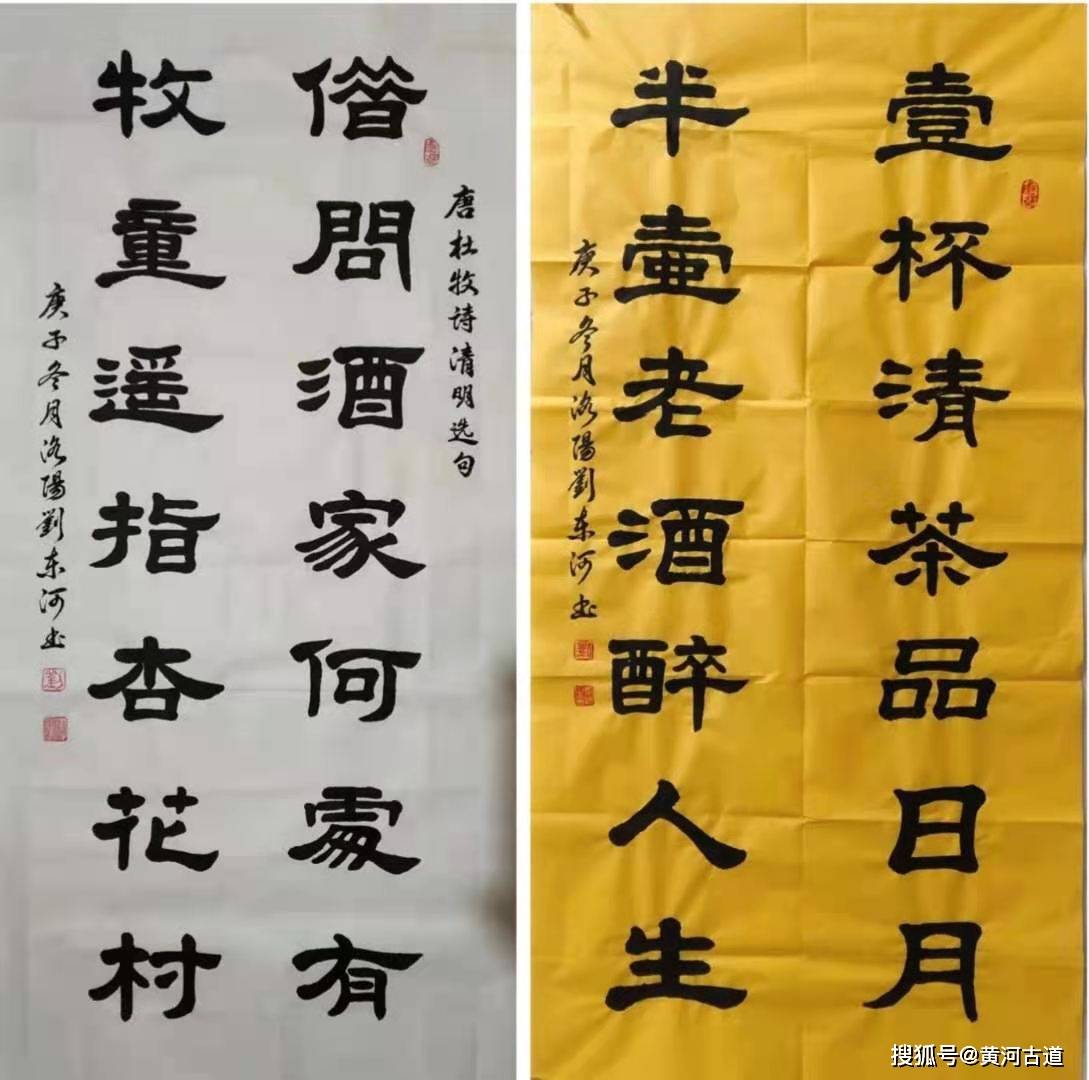 唐杜牧诗清明选句
借問酒家何處有
牧童遥指杏花村
庚子冬月洛陽劉东河书
壹杯清茶品日月
半壷老酒醉人生
庚子冬月洛陽劉东河书
搜狐号@黄河古道